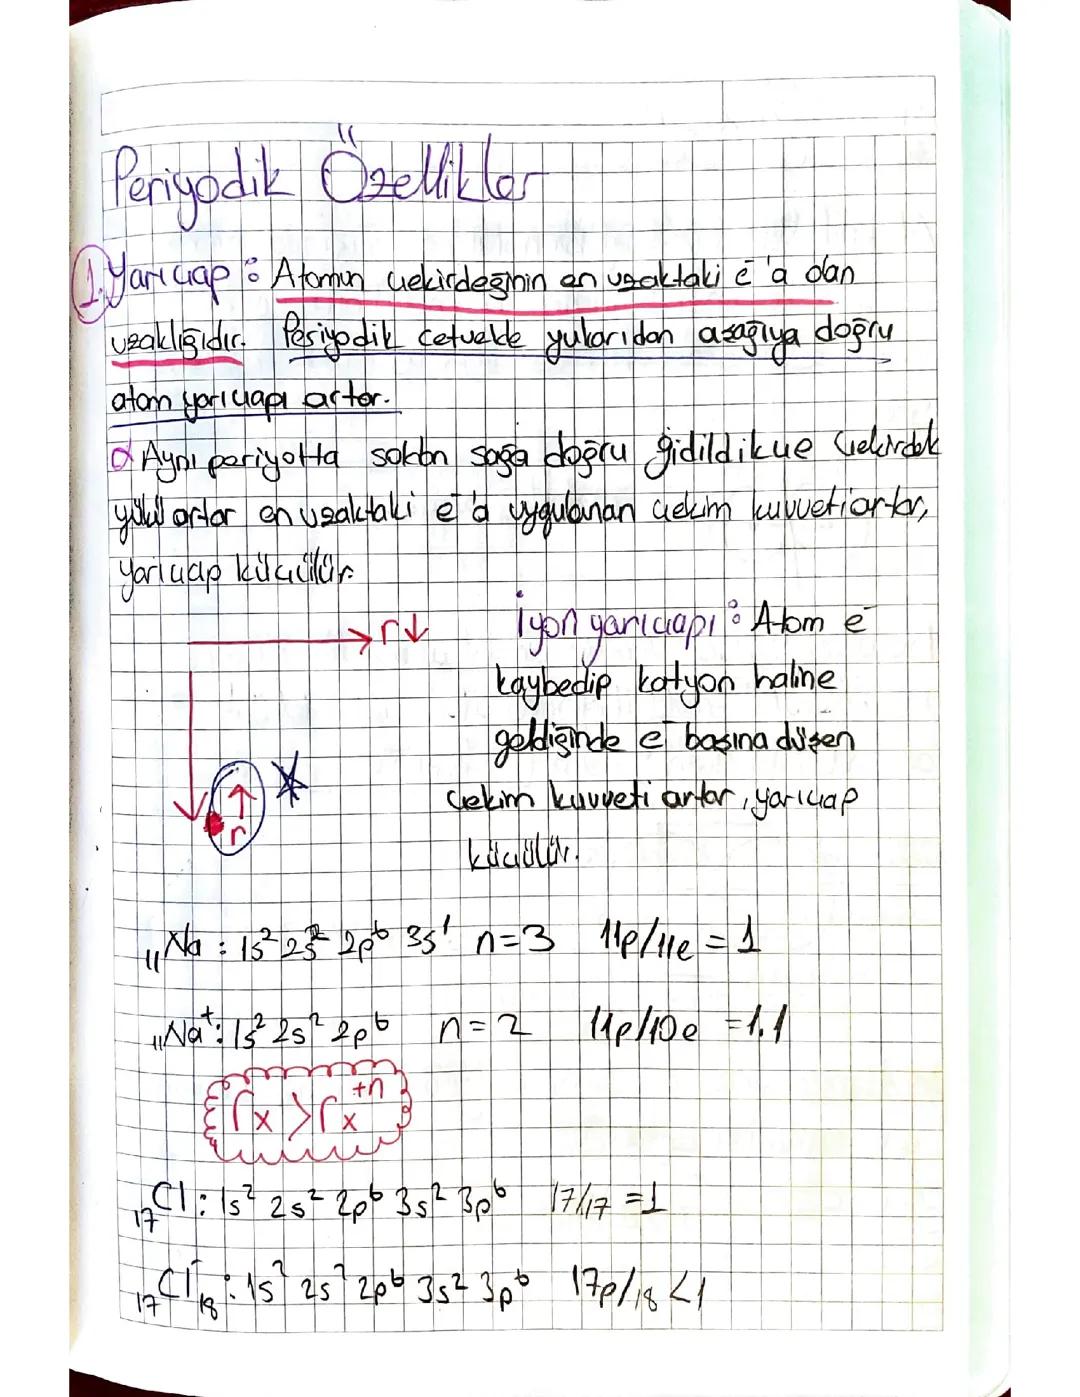 Periyodik Özellikler
1. Yarıçap : Atomun çekirdeğinin en uzaktaki e⁻'a olan
uzaklığıdır. Periyodik cetvelde yukarıdan aşağıya doğru
atom yarıçapı artar.
Aynı periyotta soldan sağa doğru gidildikçe çekirdek
yükü artar en uzaktaki e⁻'a uygulanan çekim kuvveti artar,
yarıçap küçülür.
→ r↓
İyon yarıçapı : Atom e⁻
kaybedip katyon haline
geldiğinde e⁻ başına düşen
çekim kuvveti artar, yarıçap
küçülür.
↑
r
₁₁Na : 1s² 2s² 2p⁶ 3s¹ n=3 11p/11e = 1
₁₁Na⁺ : 1s² 2s² 2p⁶ n=2 11p/10e =1.1
rx > rx⁺ⁿ
₁₇Cl : 1s² 2s² 2p⁶ 3s² 3p⁶ 17/17 =1
₁₇Cl⁻₁₈ : 1s² 2s² 2p⁶ 3s² 3p⁶ 17p/18 <1